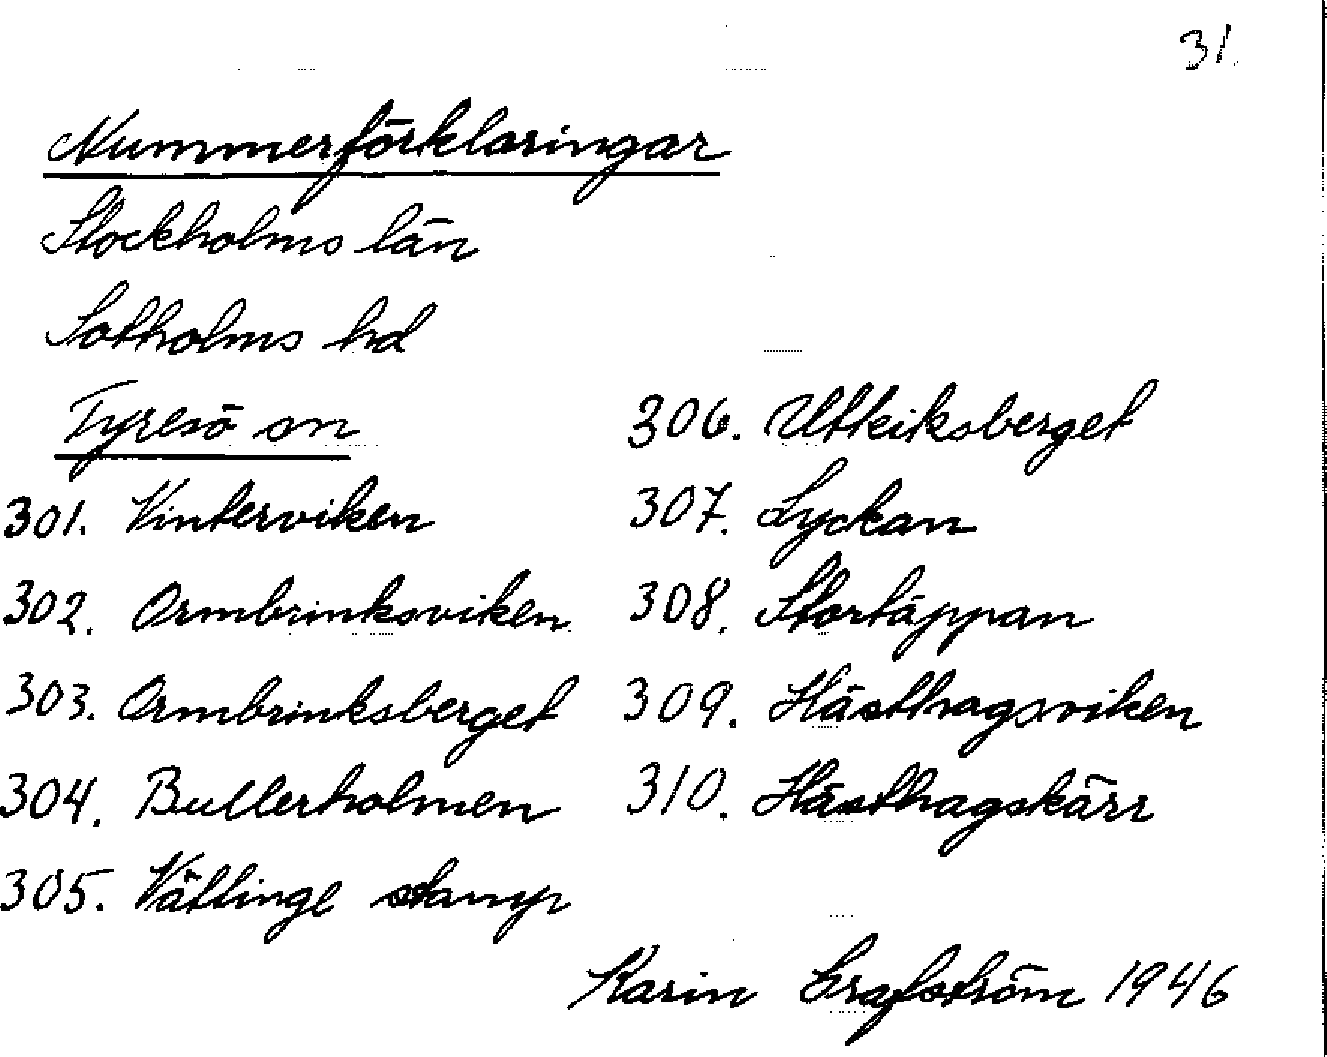 31.
Nummerförklaringar
Stockholms län
Sotholms hd
Tyresö sn
301. Vinterviken
302. Ormbrinksviken
303. Ormbrinksberget
304. Bullerholmen
305. Vättinge stamp
306. Utkiksberget
307. Lyckan
308. Stortäppan
309. Hästhagsviken
310. Hästhagskärr
Karin Grafström 1946